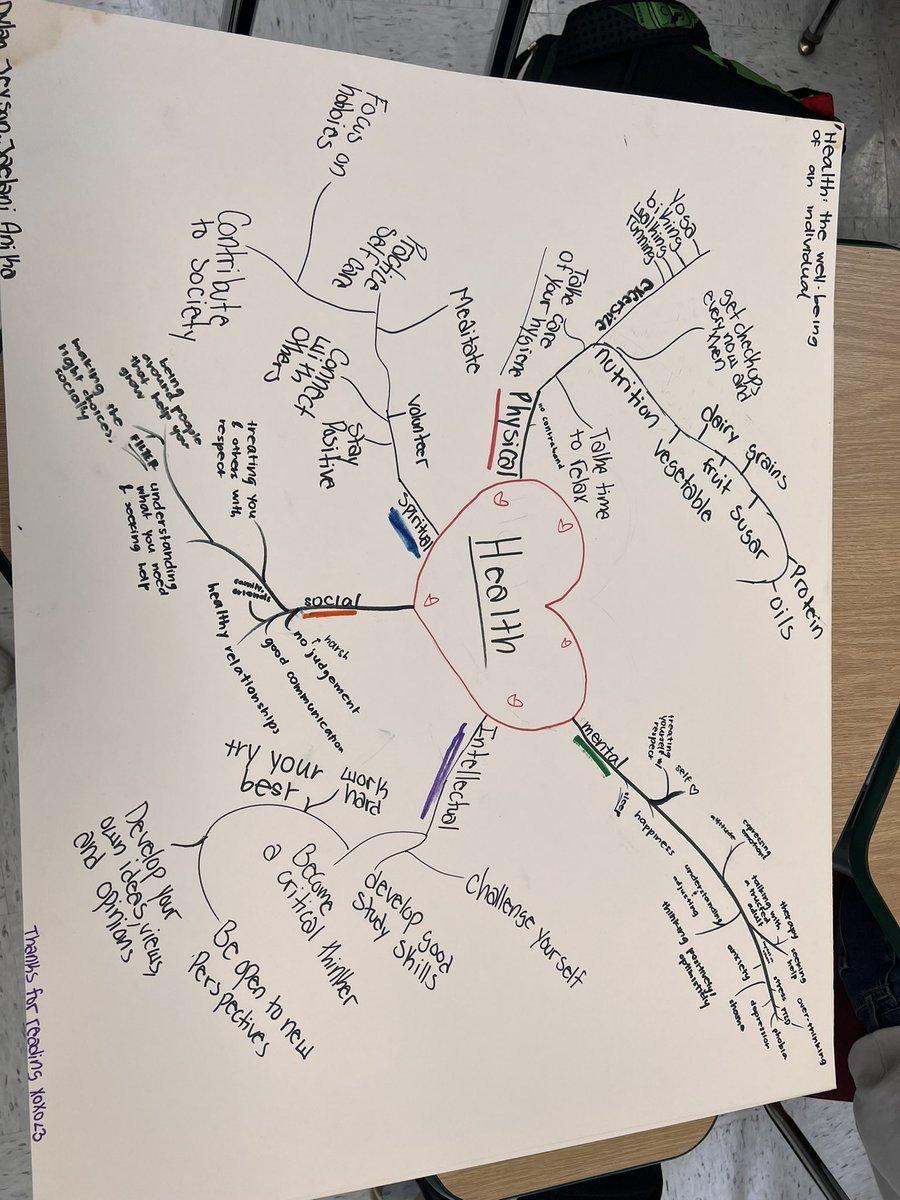 "Health: the well-being
of an individual
Health
Physical
no contraband
Take time
to relax
Take care
of your hygiene
excersize
Yoga
biking
walking
running
get checkups
now and
every then
nutrition
dairy
grains
fruit
vegetable
sugar
Protein
oils
mental
self ♡
treating
yourself w/
respect
sleep
happiness
expressing
emotions
attitude
understanding
adjusting
talking with
a trusted
adult
therapy
seeking
help
thinking positively/
optimistically
anxiety
stress
PTSD
over-thinking
phobia
depression
shame
Spiritual
volunteer
Stay
Positive
Connect
with
Others
Meditate
Practice
Self care
Contribute
to Society
Focus on
hobbies
social
harsh
no judgement
good communication
healthy relationships
family,
friends
treating you
& others with
respect
understanding
what you need
& seeking help
being people
around help you
that
grow
making the
right choices,
socially
Intellectual
Challenge yourself
develop good
Study skills
Become
a critical thinker
work
hard
try your
best
Develop your
own ideas, views,
and opinions
Be open to new
Perspectives
Thanks for reading xoxo<3